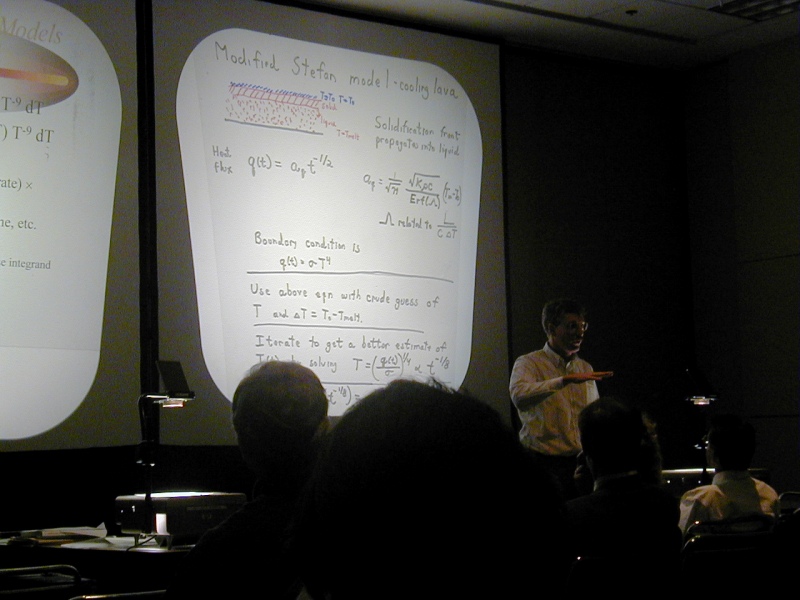 Models
T⁻⁹ dT
) T⁻⁹ dT
rate) ×
ne, etc.
e integrand
Modified Stefan model - cooling lava
solid
liquid
T=Tmelt
Solidification front
propagates into liquid
Heat
flux
q(t) = a_q t^{-1/2}
a_q = 1/√π √KρC / Erf(Ω)
Ω related to L / C ΔT
Boundary condition is
q(t) = σT⁴
Use above eqn with crude guess of
T and ΔT = T₀-Tmelt.
Iterate to get a better estimate of
solving T = (q(t)/σ)^{1/4} ∝ t^{-1/8}
t^{-1/8}) =